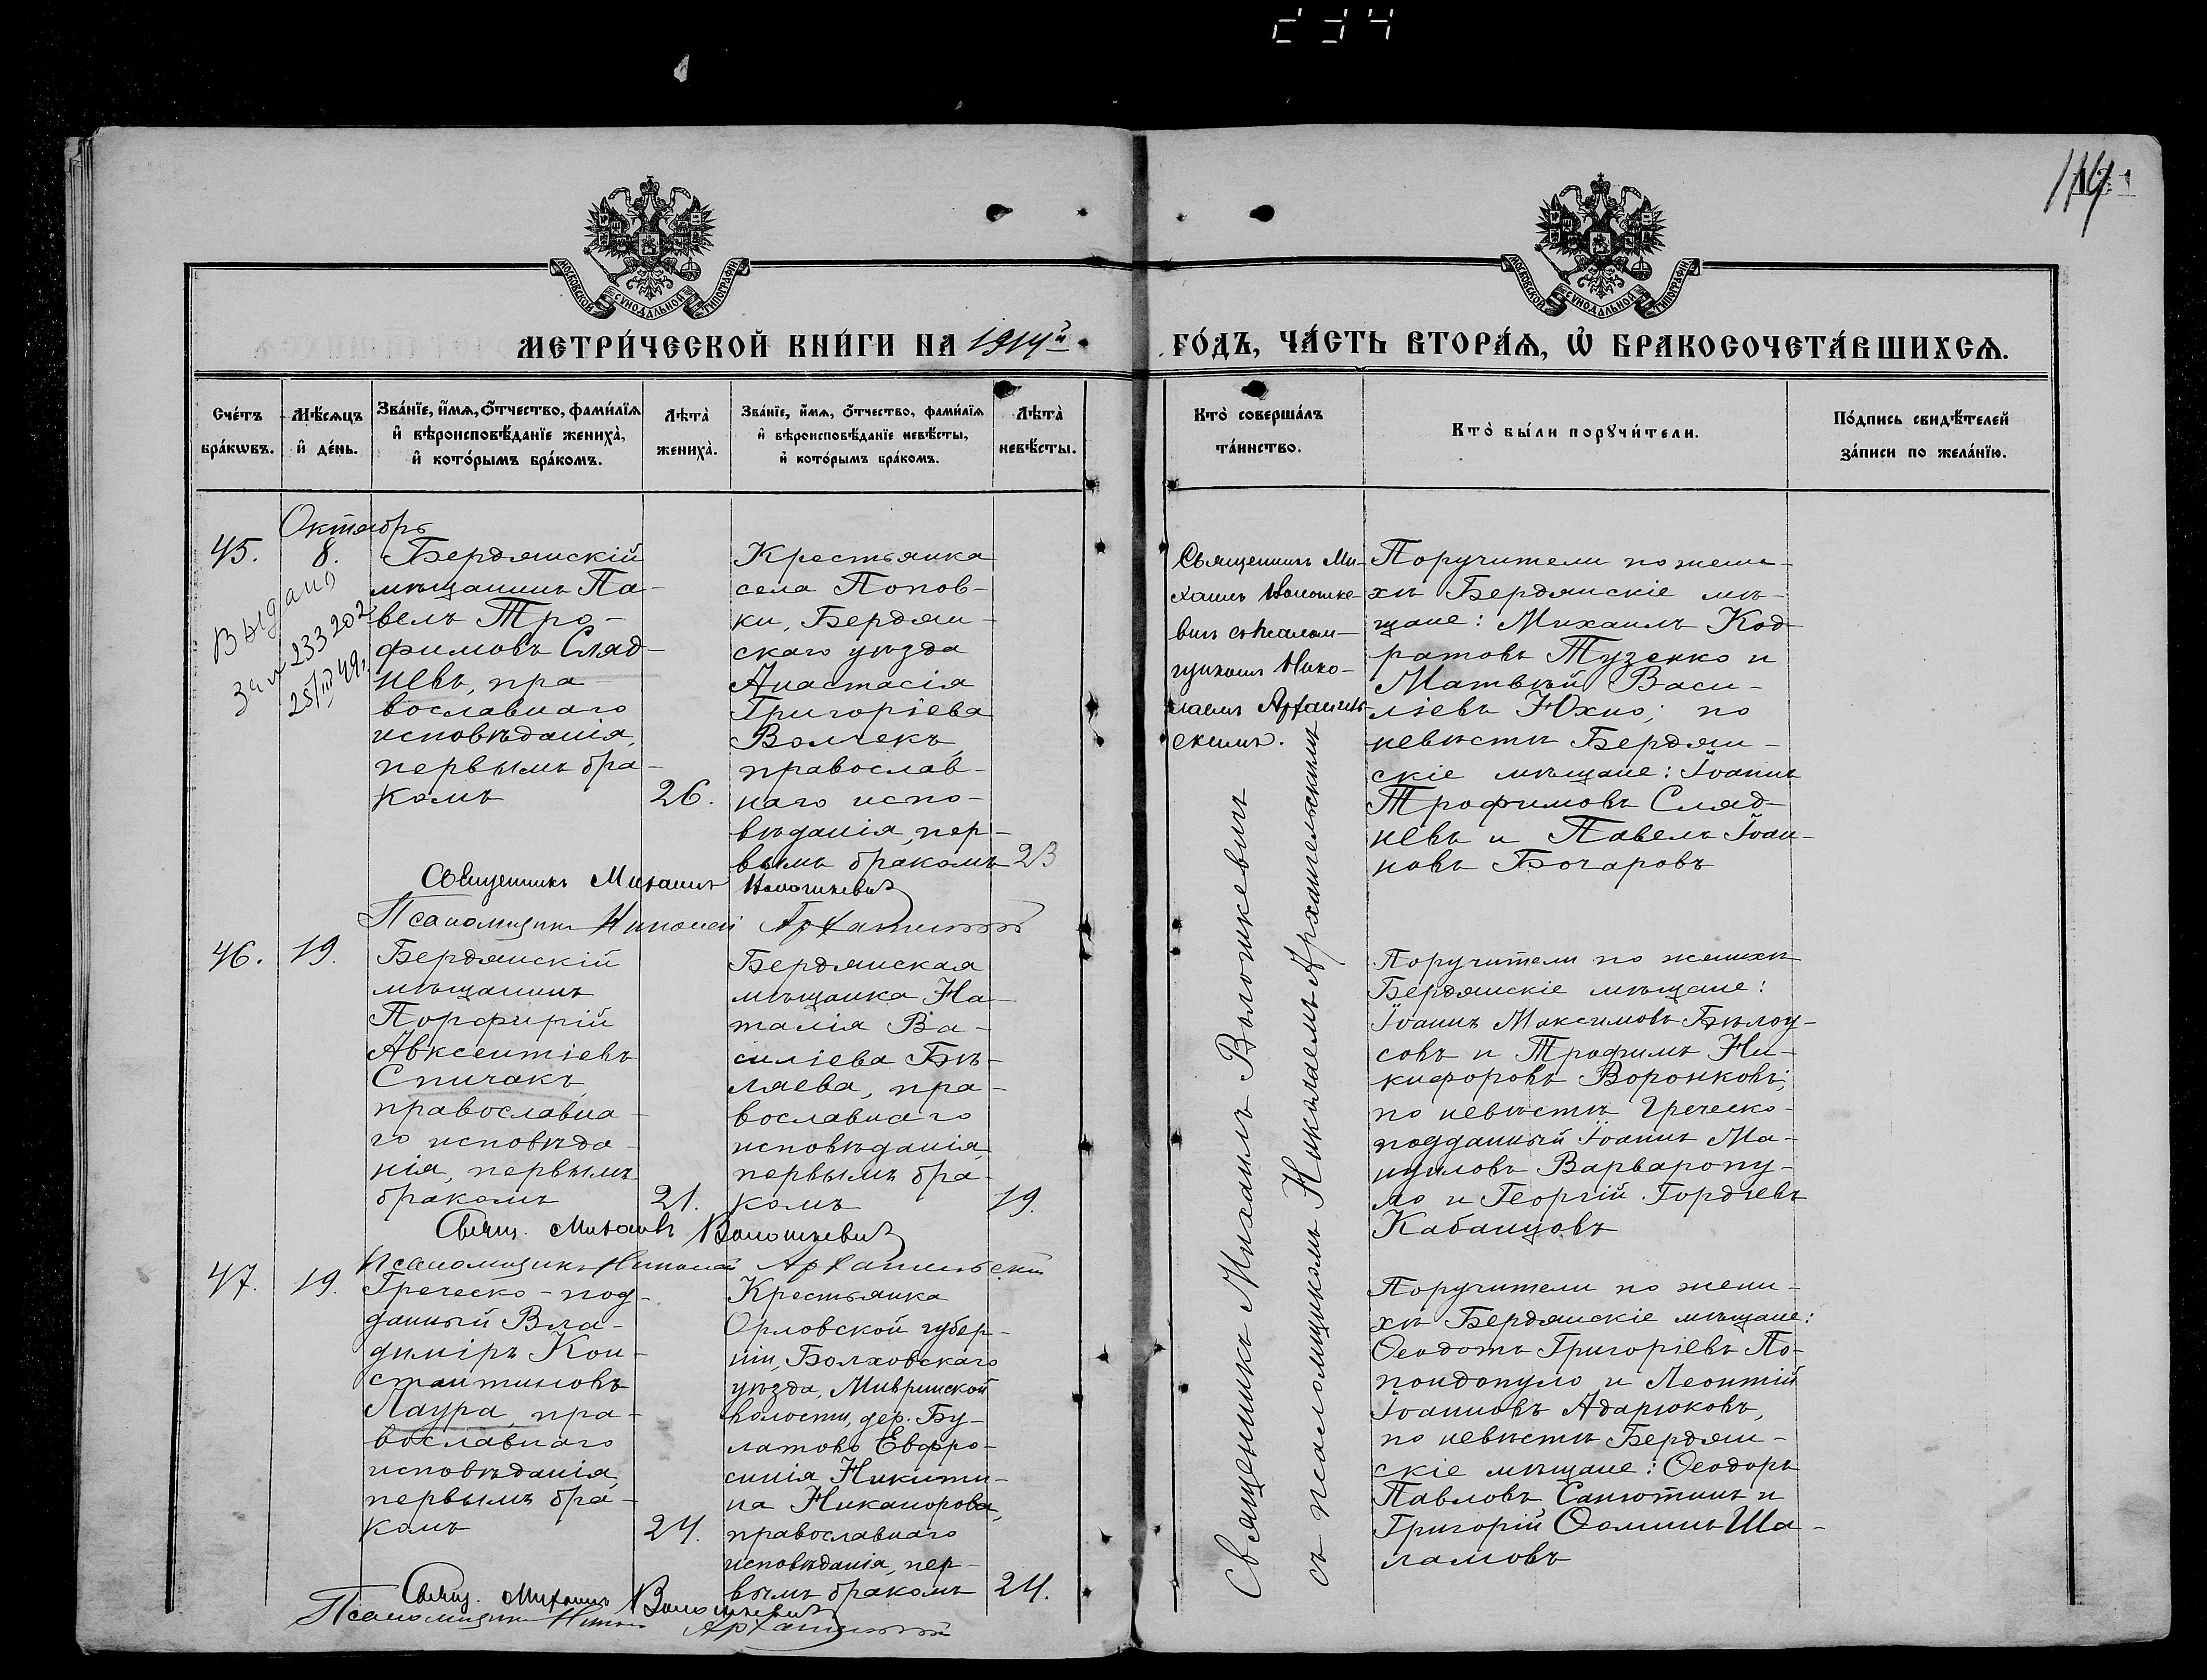 234
114
МОСКОВСКОЙ СѴНОДАЛЬНОЙ ТИПОГРАФИ.
МОСКОВСКОЙ СѴНОДАЛЬНОЙ ТИПОГРАФИ.
МЕТРИ́ЧЕСКОЙ КНИ́ГИ НА 1914й
ГО́ДЪ, ЧА́СТЬ ВТОРА́Ѧ, Ѡ҆ БРАКОСОЧЕТА́ВШИХСѦ.
Сче́тъ бра́кѡвъ.
Мѣ́сѧцъ и҆ де́нь.
Зва́нїе, и҆́мѧ, ѻ҆́тчество, фами́лїѧ
и҆ вѣроисповѣ́данїе жениха̀,
и҆ кото́рымъ бра́комъ.
Лѣта̀ жениха̀.
Зва́нїе, и҆́мѧ, ѻ҆́тчество, фами́лїѧ
и҆ вѣроисповѣ́данїе невѣ́сты,
и҆ кото́рымъ бра́комъ.
Лѣта̀ невѣ́сты.
Кто̀ соверша́лъ та́инство.
Кто̀ бы́ли порꙋчи́тели.
По́дпись свидѣ́телей
за́писи по жела́нїю.
Октябрь
45.
8.
Выдано
233202
25/III 49г.
Бердянскій
мѣщанинъ Па-
велъ Тро-
фимовъ Сляд-
невъ, пра-
вославнаго
исповѣданія,
первымъ бра-
комъ
26.
Крестьянка
села Попов-
ки, Бердян-
скаго уѣзда
Анастасія
Григоріева
Волчекъ,
православ-
наго испо-
вѣданія, пер-
вымъ бракомъ
23
Священникъ Ми-
хаилъ Волошке-
вичъ съ псалом-
щикомъ Нико-
лаемъ Архангель-
скимъ.
Поручители по жени-
хѣ Бердянскіе мѣ-
щане: Михаилъ Код-
ратовъ Тузенко и
Матвѣй Васи-
ліевъ Юхно; по
невѣстѣ Бердян-
скіе мѣщане: Іоаннъ
Трофимовъ Сляд-
невъ и Павелъ Іоан-
новъ Бочаровъ
Священникъ Михаилъ Волошкевичъ
Псаломщикъ Николай Архангельскій
46.
19.
Бердянскій
мѣщанинъ
Порфирій
Авксентіевъ
Спичакъ,
православна-
го исповѣда-
нія, первымъ
бракомъ
21.
Бердянская
мѣщанка На-
талія Ва-
силіева Бѣ-
ляева, пра-
вославнаго
исповѣданія,
первымъ бра-
комъ
19.
Поручители по женихѣ
Бердянскіе мѣщане:
Іоаннъ Максимовъ Бѣлоу-
совъ и Трофимъ Ни-
кифоровъ Воронковъ;
по невѣстѣ Греческо-
подданный Іоаннъ Ма-
нуиловъ Варваропу-
ло и Георгій Гордѣевъ
Кабанцовъ
Свящ. Михаилъ Волошкевичъ
Псаломщикъ Николай Архангельскій
47.
19.
Греческо-под-
данный Вла-
диміръ Кон-
стантиновъ
Лаура, пра-
вославнаго
исповѣданія,
первымъ бра-
комъ
24.
Крестьянка
Орловской губер-
ніи, Болховскаго
уѣзда,
волости, дер. Бу-
латово Евфро-
синія Никити-
на Никанорова,
православнаго
исповѣданія, пер-
вымъ бракомъ
24.
Поручители по жени-
хѣ Бердянскіе мѣщане:
Ѳеодотъ Григоріевъ По-
пондопуло и Леонтій
Іоанновъ Адарюковъ,
по невѣстѣ Бердян-
скіе мѣщане: Ѳеодоръ
Павловъ Санютинъ и
Григорій Ѳоминъ Ша-
ламовъ
Свящ. Михаилъ Волошкевичъ
Псаломщикъ Николай Архангельскій
Священникъ Михаилъ Волошкевичъ
съ псаломщикомъ Николаемъ Архангельскимъ